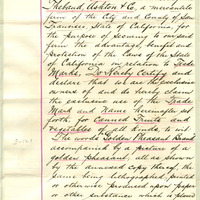 Thebaud, Ashton & Co. a mercantile
firm of the City and County of San
Francisco, State of California for
the purpose of securing to ourself
from the advantage, benefit and
protection of the Laws of the State
of California in relation to Trade
Marks, Do Hereby Certify and
Declare that we are the exclusive
owners of and do hereby claim
the exclusive use of the Trade
Mark and Name hereinafter set
forth, for Canned Fruits and
vegetables of all kinds, to wit:
The words Golden Pheasant Brand
accompanied by a picture of a
golden pheasant, all as shown
by the annexed copy thereof, the
same being lithographed, printed
or otherwise produced upon paper
or other substance which is placed